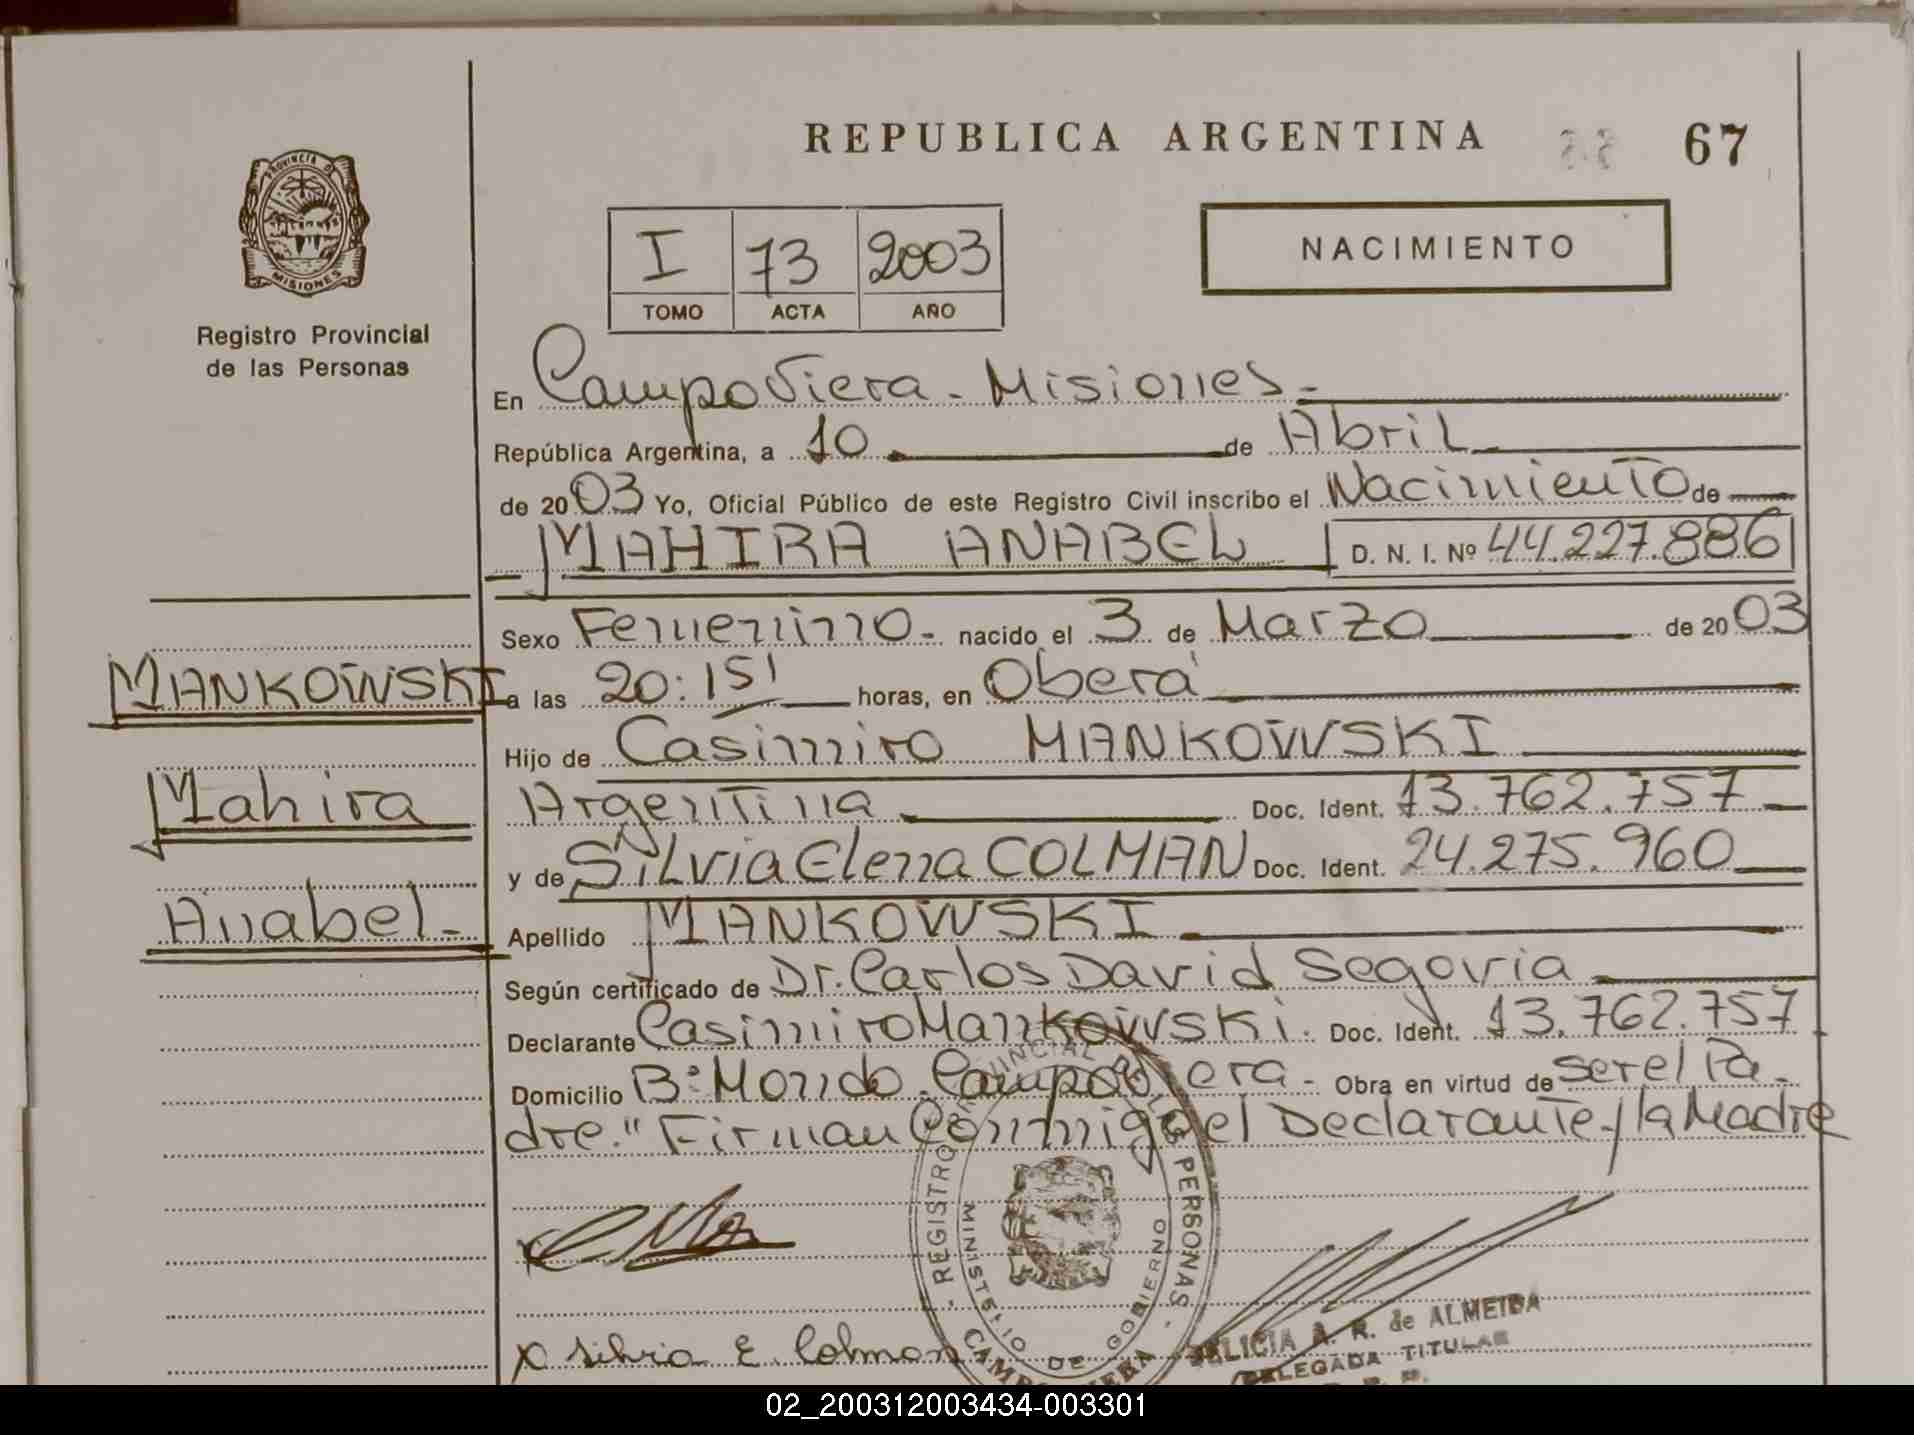 REPUBLICA ARGENTINA
67
PROVINCIA DE MISIONES
Registro Provincial
de las Personas
I 73 2003
TOMO ACTA AÑO
NACIMIENTO
En Campo Viera - Misiones -
República Argentina, a 10 de Abril
de 2003 Yo, Oficial Público de este Registro Civil inscribo el Nacimiento de
MAHIRA ANABEL D. N. I. Nº 44.227.886
Sexo Femenino - nacido el 3 de Marzo de 2003
MANKOWSKI
a las 20:15' horas, en Oberá
Hijo de Casimiro MANKOWSKI
Mahira
Argentina Doc. Ident. 13.762.757
y de Silvia Elena COLMAN Doc. Ident. 24.275.960
Anabel -
Apellido MANKOWSKI
Según certificado de Dr. Carlos David Segovia
Declarante Casimiro Mankowski. Doc. Ident. 13.762.757
Domicilio Bº Mondo. Campo Viera - Obra en virtud de ser el Pa-
dre." Firman Conmigo el Declarante y la Madre
REGISTRO PROVINCIAL DE LAS PERSONAS
MINISTERIO DE GOBIERNO
CAMPO VIERA
x Silvia E. Colman
FELICIA A. R. de ALMEIDA
DELEGADA TITULAR
02_200312003434-003301